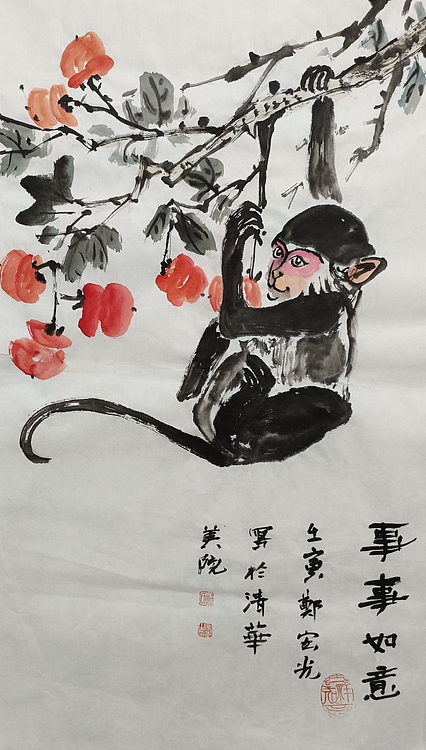 事事如意
壬寅鄭宝光
寫於清華
美院